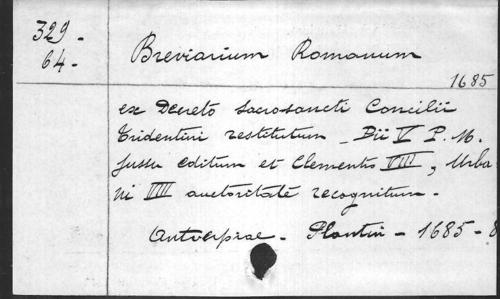 329 -
64 -
Breviarium Romanum
1685
ex Decreto Sacrosancti Concilii
Tridentini restitutum - Pii V P. M.
jussu editum et Clementis VIII, Urba
ni VIII auctoritate recognitum -
Antverpiae - Plantin - 1685 - 8